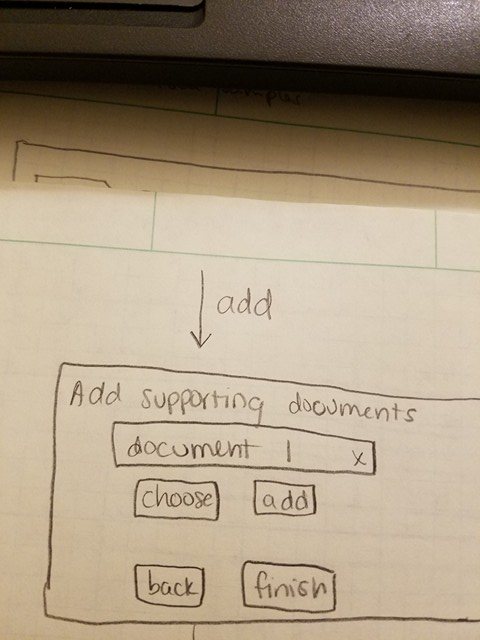 add
Add supporting documents
document 1 x
choose add
back finish